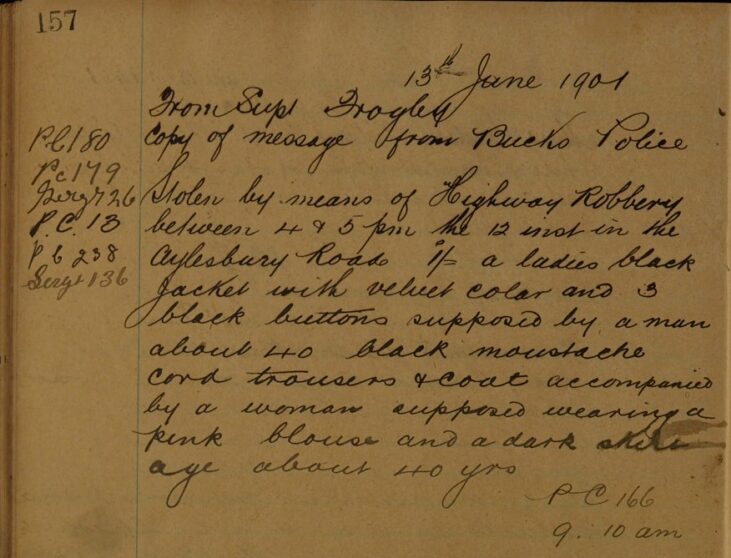 157
13th June 1901
From Supt Frogley
Copy of message from Bucks Police
PC 180
Pc 179
Sergt 26
P.C. 13
PC 238
Sergt 136
Stolen by means of Highway Robbery
between 4 & 5 pm the 12 inst in the
Aylesbury Road 1/= a ladies black
Jacket with velvet colar and 3
black buttons supposed by a man
about 40 black moustache
cord trousers & coat accompanied
by a woman supposed wearing a
pink blouse and a dark skirt
age about 40 yrs
PC 166
9. 10 am